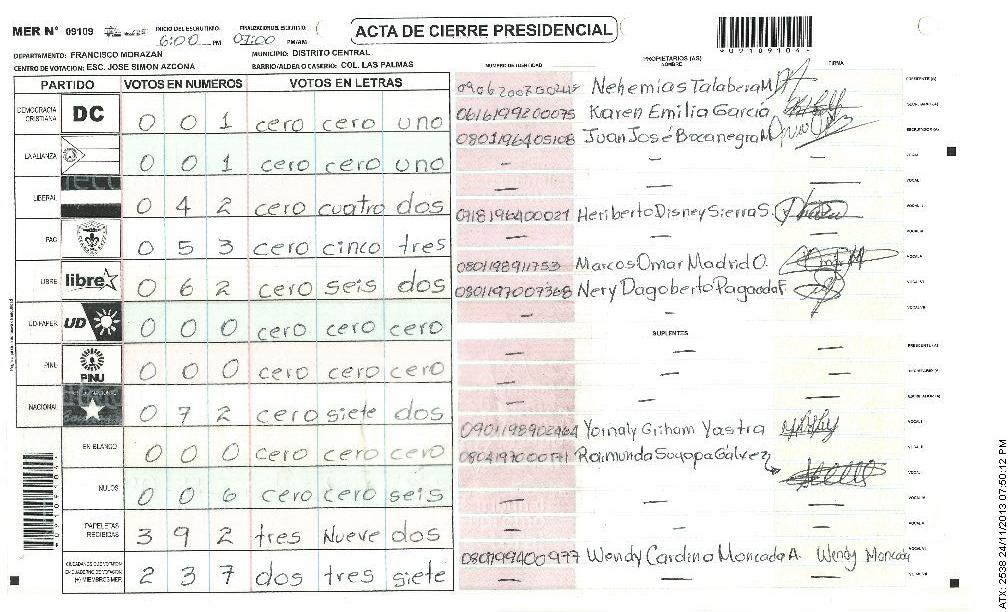 MER N° 09109
INICIO DEL ESCRUTINIO: 6:00 PM
FINALIZACION DEL ESCRUTINIO: 07:00 PM/AM
ACTA DE CIERRE PRESIDENCIAL
DEPARTAMENTO: FRANCISCO MORAZAN
MUNICIPIO: DISTRITO CENTRAL
CENTRO DE VOTACION: ESC. JOSE SIMON AZCONA
BARRIO/ALDEA O CASERIO: COL. LAS PALMAS
PARTIDO VOTOS EN NUMEROS VOTOS EN LETRAS
DEMOCRACIA CRISTIANA DC 0 0 1 cero cero uno
LA ALIANZA 0 0 1 cero cero uno
LIBERAL 0 4 2 cero cuatro dos
PAC 0 5 3 cero cinco tres
LIBRE libre 0 6 2 cero seis dos
UD-FAPER UD 0 0 0 cero cero cero
PINU PINU 0 0 0 cero cero cero
NACIONAL 0 7 2 cero siete dos
EN BLANCO 0 0 0 cero cero cero
NULOS 0 0 6 cero cero seis
PAPELETAS RECIBIDAS 3 9 2 tres Nueve dos
CIUDADANOS QUE VOTARON EN CUADERNO DE VOTACION (+) MIEMBROS MER 2 3 7 dos tres siete
NUMERO DE IDENTIDAD
PROPIETARIOS (AS)
NOMBRE
FIRMA
Nehemias Talabera M
PRESIDENTE (A)
0616199200075 Karen Emilia García
SECRETARIO (A)
0801196405108 Juan José Bocanegra M
ESCRUTADOR (A)
0718196400021 Heriberto Disney Sierra S.
0801198911753 Marcos Omar Madrid O.
0801197007368 Nery Dagoberto
SUPLENTES
PRESIDENTE (A)
SECRETARIO (A)
ESCRUTADOR (A)
0901198902464
Raimunda
0801199400977 Wendy Cardina Moncada A. Wendy Moncada
ATX: 2538 24/11/2013 07:50:12 PM